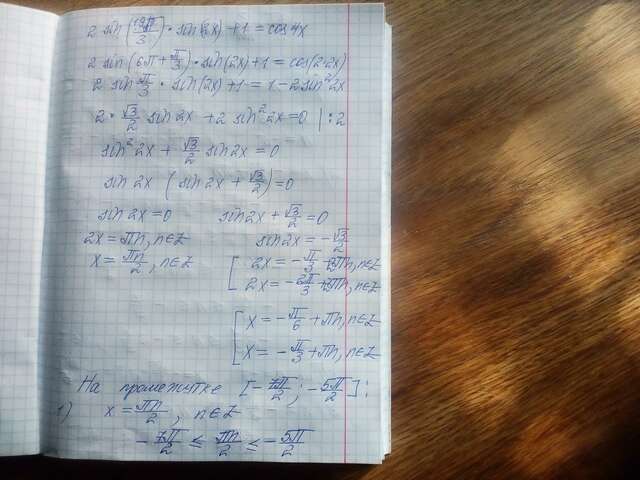 2 sin(19π/3) · sin(2x) + 1 = cos 4x
2 sin(6π + π/3) · sin(2x) + 1 = cos(2·2x)
2 sin π/3 · sin(2x) + 1 = 1 - 2sin²2x
2 · √3/2 sin 2x + 2 sin² 2x = 0 | : 2
sin² 2x + √3/2 sin 2x = 0
sin 2x (sin 2x + √3/2) = 0
sin 2x = 0 sin 2x + √3/2 = 0
2x = πn, n∈Z sin 2x = -√3/2
x = πn/2, n∈Z [ 2x = -π/3 + 2πn, n∈Z
2x = -2π/3 + 2πn, n∈Z
[ x = -π/6 + πn, n∈Z
x = -π/3 + πn, n∈Z
На промежутке [-7π/2 ; -5π/2] :
1) x = πn/2, n∈Z
-7π/2 ≤ πn/2 ≤ -5π/2